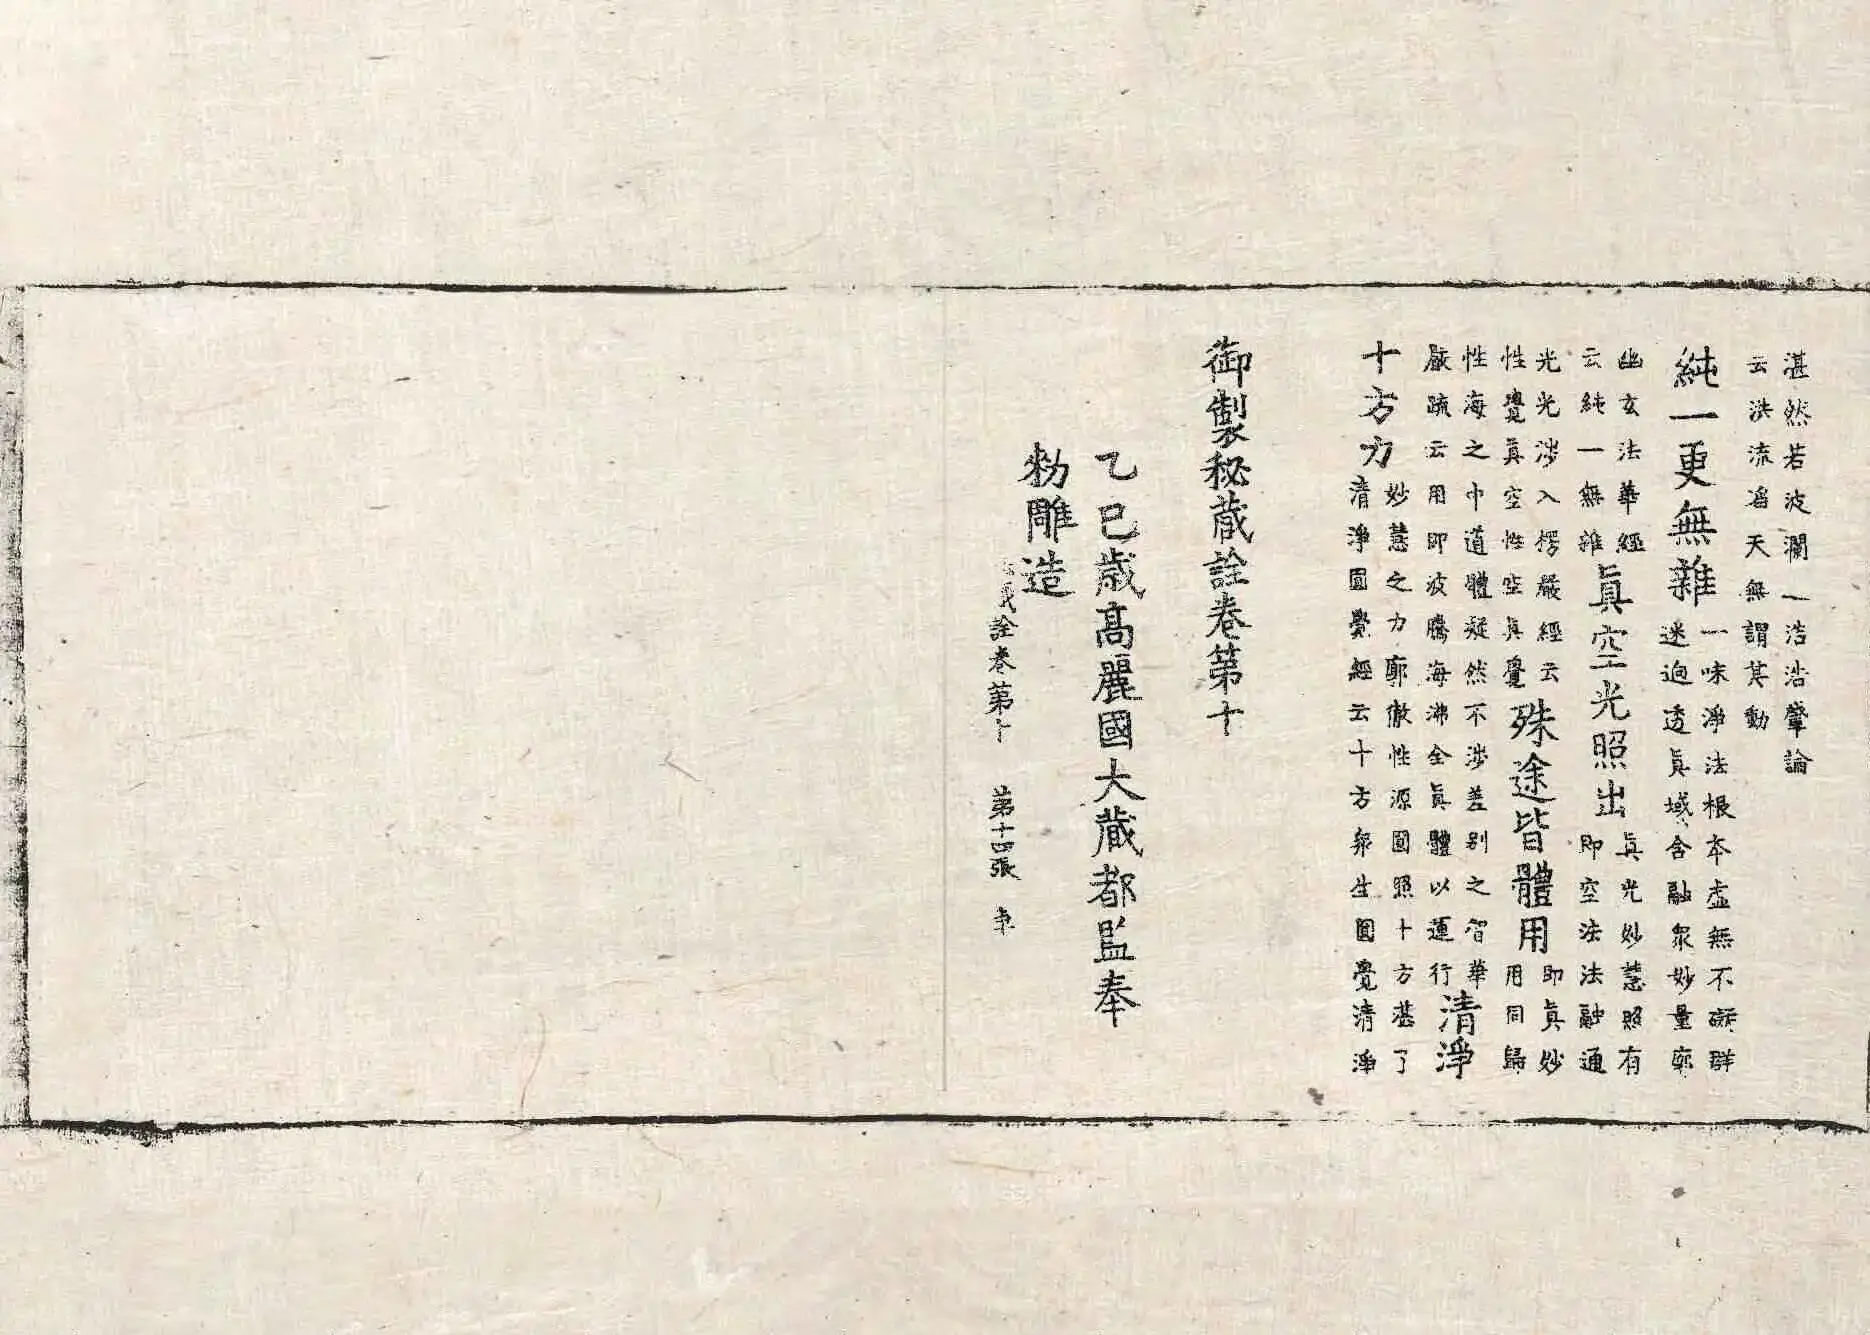 湛然若波瀾一浩浩肇論
云洪流滔天無謂其動
純一更無雜
一味淨法根本虛無不礙群
迷逈透眞域含融衆妙量廓
幽玄法華經
云純一無雜
眞空光照出
眞光妙慧照有
即空法法融通
光光涉入楞嚴經云
性覺眞空性空眞覺
殊途皆體用
即眞妙
用同歸
性海之中道體凝然不涉差別之智華
嚴疏云用即波騰海沸全眞體以運行
清淨
十方力
妙慧之力廓徹性源圓照十方湛了
清淨圓覺經云十方衆生圓覺清淨
御製秘藏詮卷第十
乙巳歲高麗國大藏都監奉
勑雕造
藏詮卷第十 第十四張